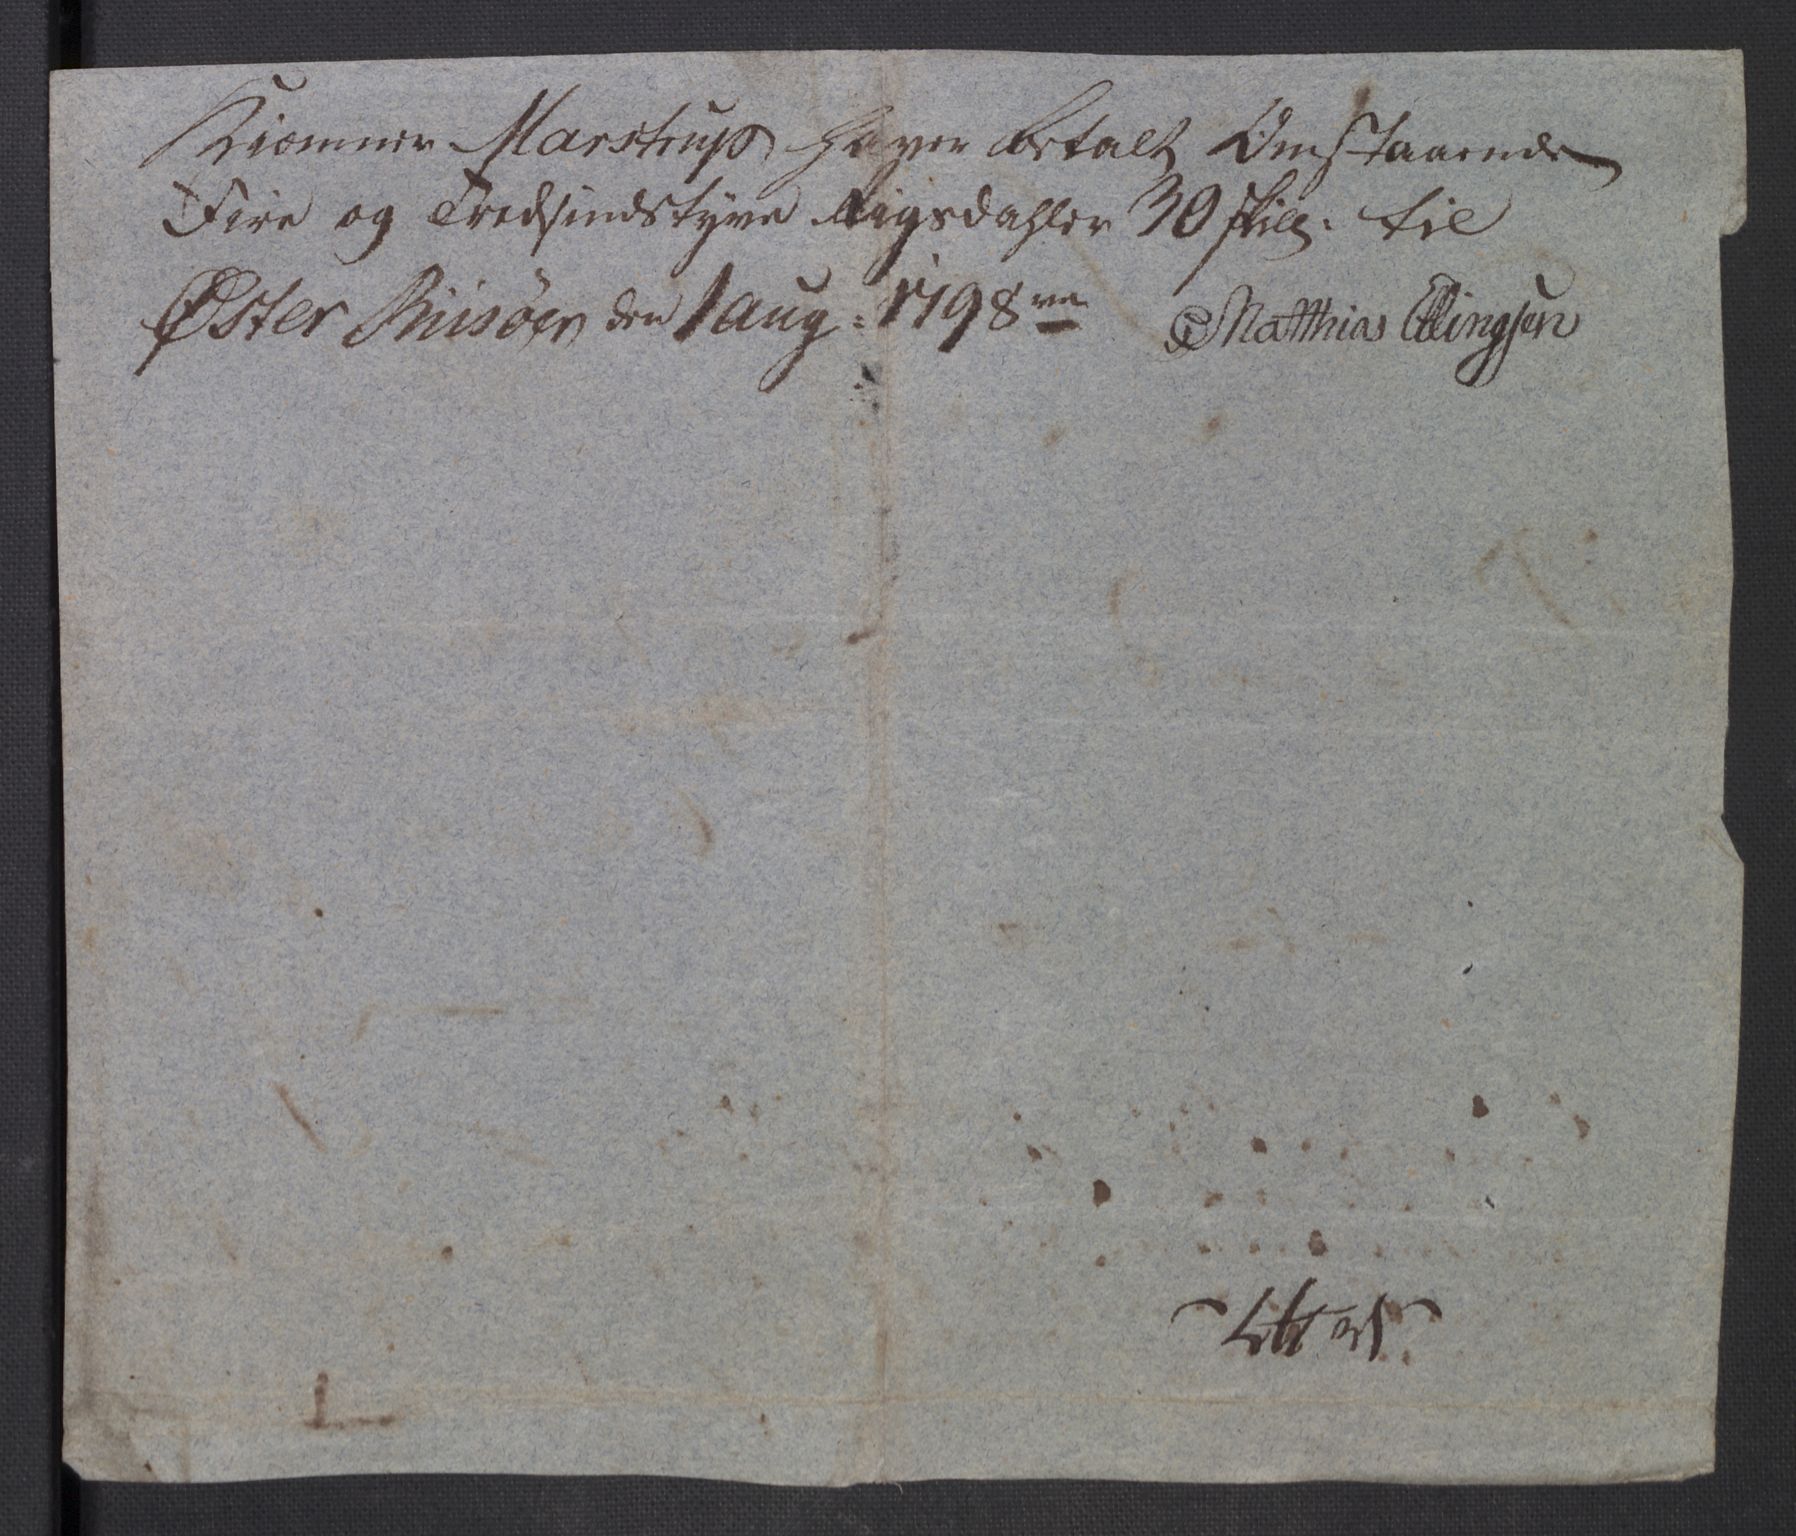 Kiæmner Marstrup haver betalt Omstaaende
Fire og Tredsindstyve Rigsdahler 30 skill: til
Øster Riisöer den 1 aug: 1798 Matthias Ellingsen